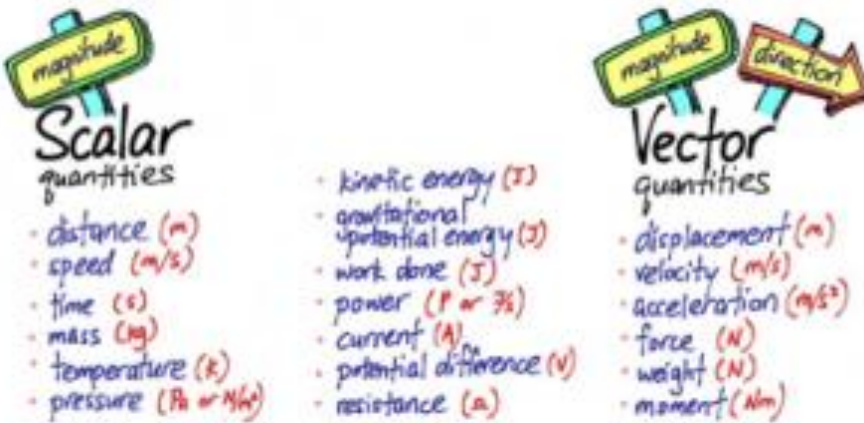 magnitude
Scalar
quantities
distance (m)
speed (m/s)
time (s)
mass (kg)
temperature (K)
pressure (Pa or N/m²)
kinetic energy (J)
gravitational
potential energy (J)
work done (J)
power (P or J/s)
current (A)
potential difference (V)
resistance (Ω)
magnitude
direction
Vector
quantities
displacement (m)
velocity (m/s)
acceleration (m/s²)
force (N)
weight (N)
moment (Nm)